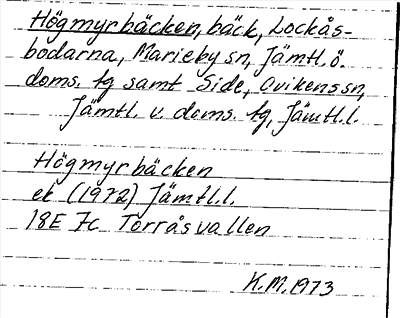 Högmyrbäcken, bäck, Lockås-
bodarna, Marieby sn, Jämtl. ö.
doms. tg samt Side, Ovikens sn,
Jämtl. v. doms. tg, Jämtl. l.
Högmyrbäcken
ek (1972) Jämtl. l.
18E 7c Torråsvallen
K.M. 1973